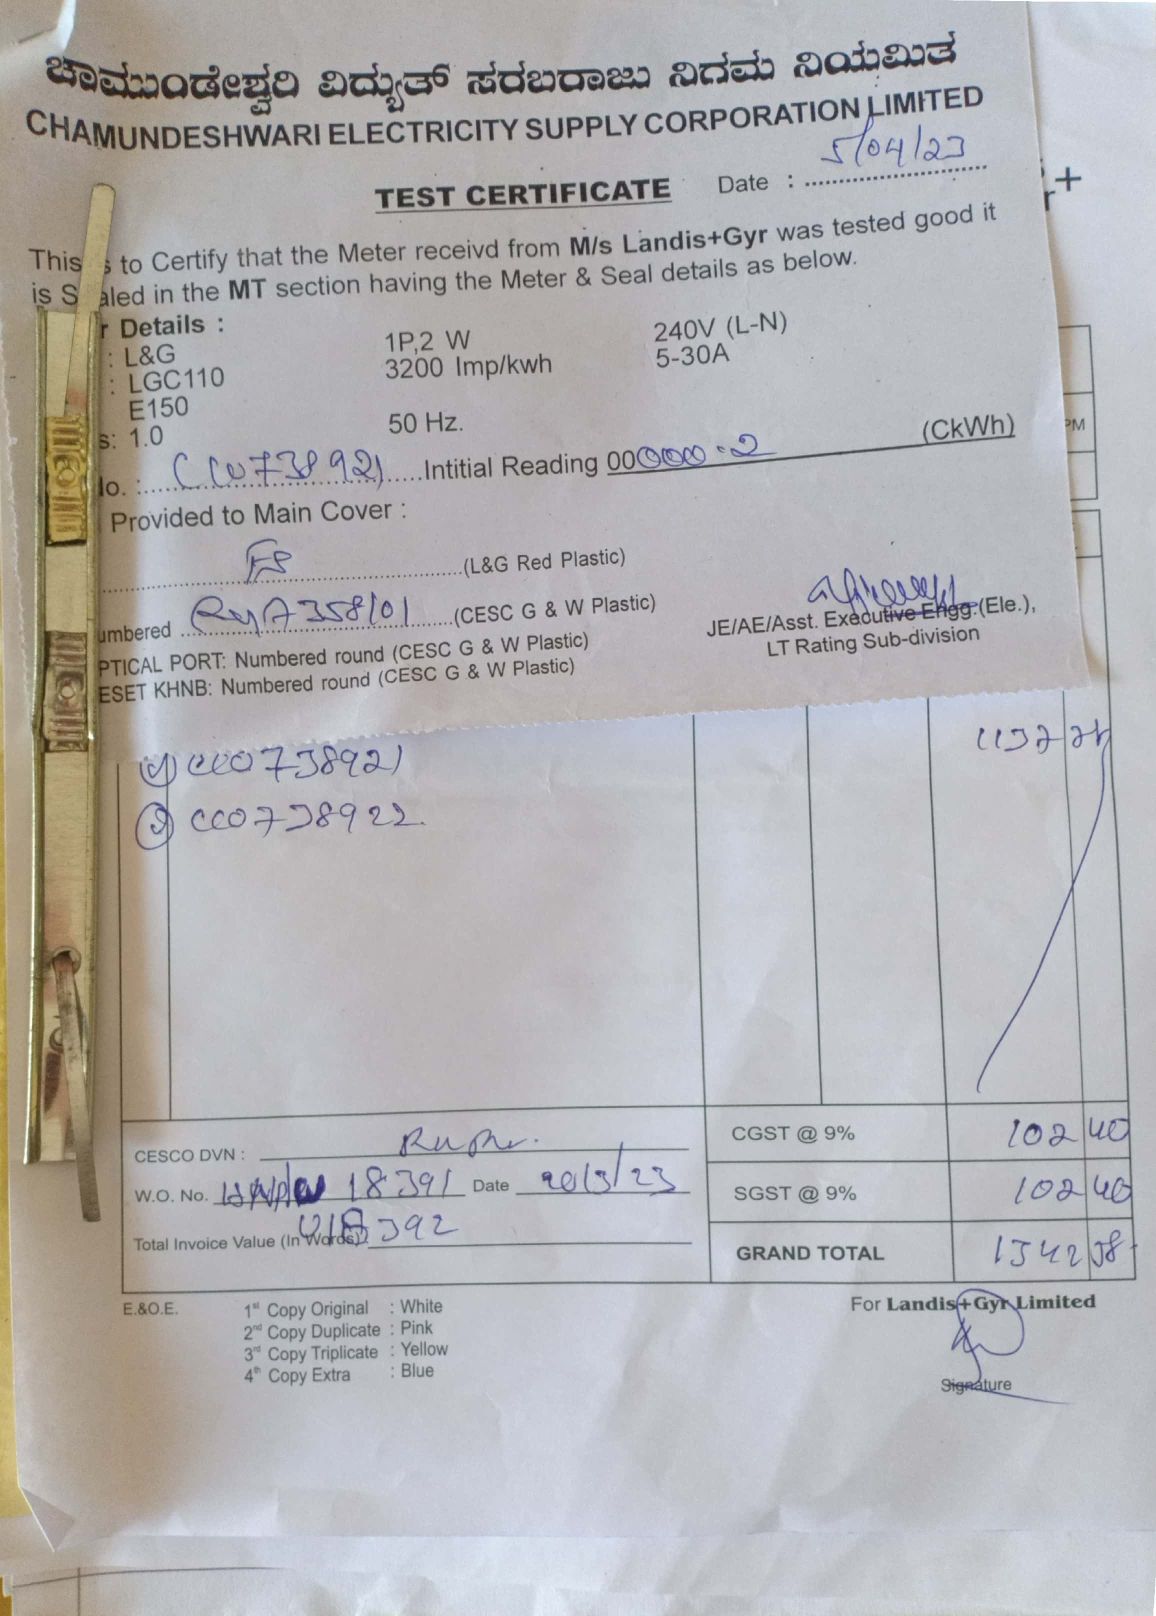 ಚಾಮುಂಡೇಶ್ವರಿ ವಿದ್ಯುತ್ ಸರಬರಾಜು ನಿಗಮ ನಿಯಮಿತ
CHAMUNDESHWARI ELECTRICITY SUPPLY CORPORATION LIMITED
TEST CERTIFICATE Date : 5/04/23
This is to Certify that the Meter receivd from M/s Landis+Gyr was tested good it
is Sealed in the MT section having the Meter & Seal details as below.
r Details :
: L&G 1P,2 W 240V (L-N)
: LGC110 3200 Imp/kwh 5-30A
E150
s: 1.0 50 Hz.
lo. : CC0738921 Intitial Reading 00000.2 (CkWh)
Provided to Main Cover :
FS (L&G Red Plastic)
umbered 358101 (CESC G & W Plastic)
PTICAL PORT: Numbered round (CESC G & W Plastic)
ESET KHNB: Numbered round (CESC G & W Plastic)
JE/AE/Asst. Executive Engg.(Ele.),
LT Rating Sub-division
PM
CC0738921
CC0738922
CGST @ 9% 102 40
SGST @ 9% 102 40
GRAND TOTAL 1342 58
CESCO DVN :
W.O. No. 18391 Date 20/3/23
18392
Total Invoice Value (In Words)
E.&O.E.
1st Copy Original : White
2nd Copy Duplicate : Pink
3rd Copy Triplicate : Yellow
4th Copy Extra : Blue
For Landis+Gyr Limited
Signature